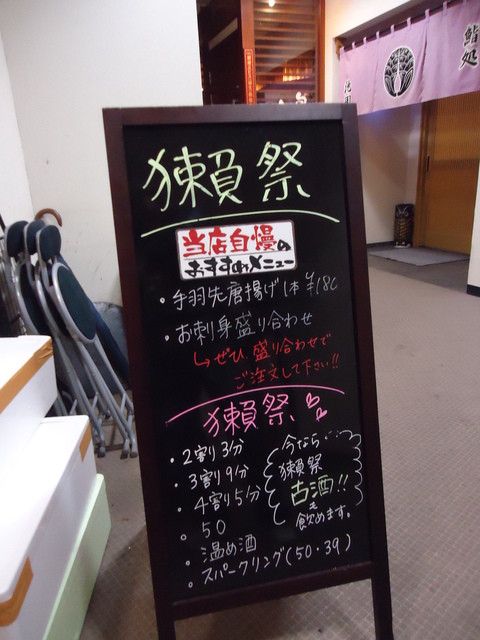 鮨処
獺祭
当店自慢の
おすすめメニュー
・手羽先唐揚げ1本 ¥180
・お刺身盛り合わせ
↳ぜひ、盛り合わせで
ご注文して下さい!!
獺祭♡♡
・2割3分
・3割9分
・4割5分
・50
・温め酒
・スパークリング(50・39)
今なら…
獺祭
古酒!!
も
飲めます。